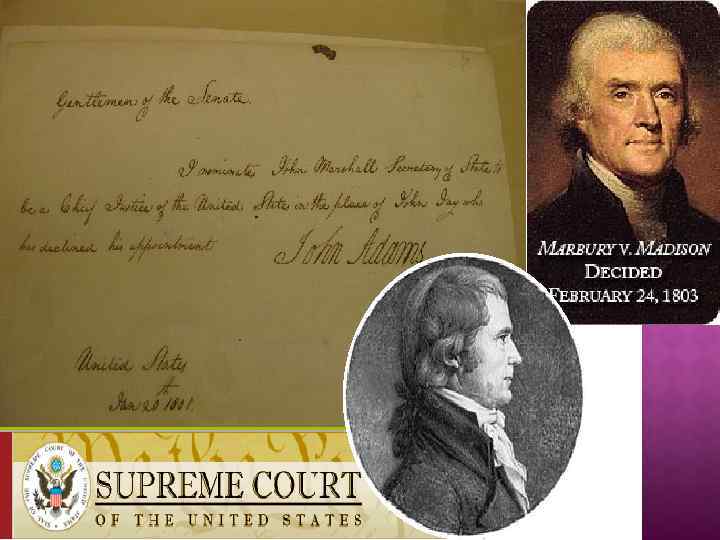 Gentlemen of the Senate.
I nominate John Marshall Secretary of State to
be a Chief Justice of the United States in the place of John Jay who
has declined his appointment.
John Adams
United States
Jan 20th 1801.
MARBURY V. MADISON
DECIDED
FEBRUARY 24, 1803
We the Pe
SUPREME COURT
OF THE UNITED STATES